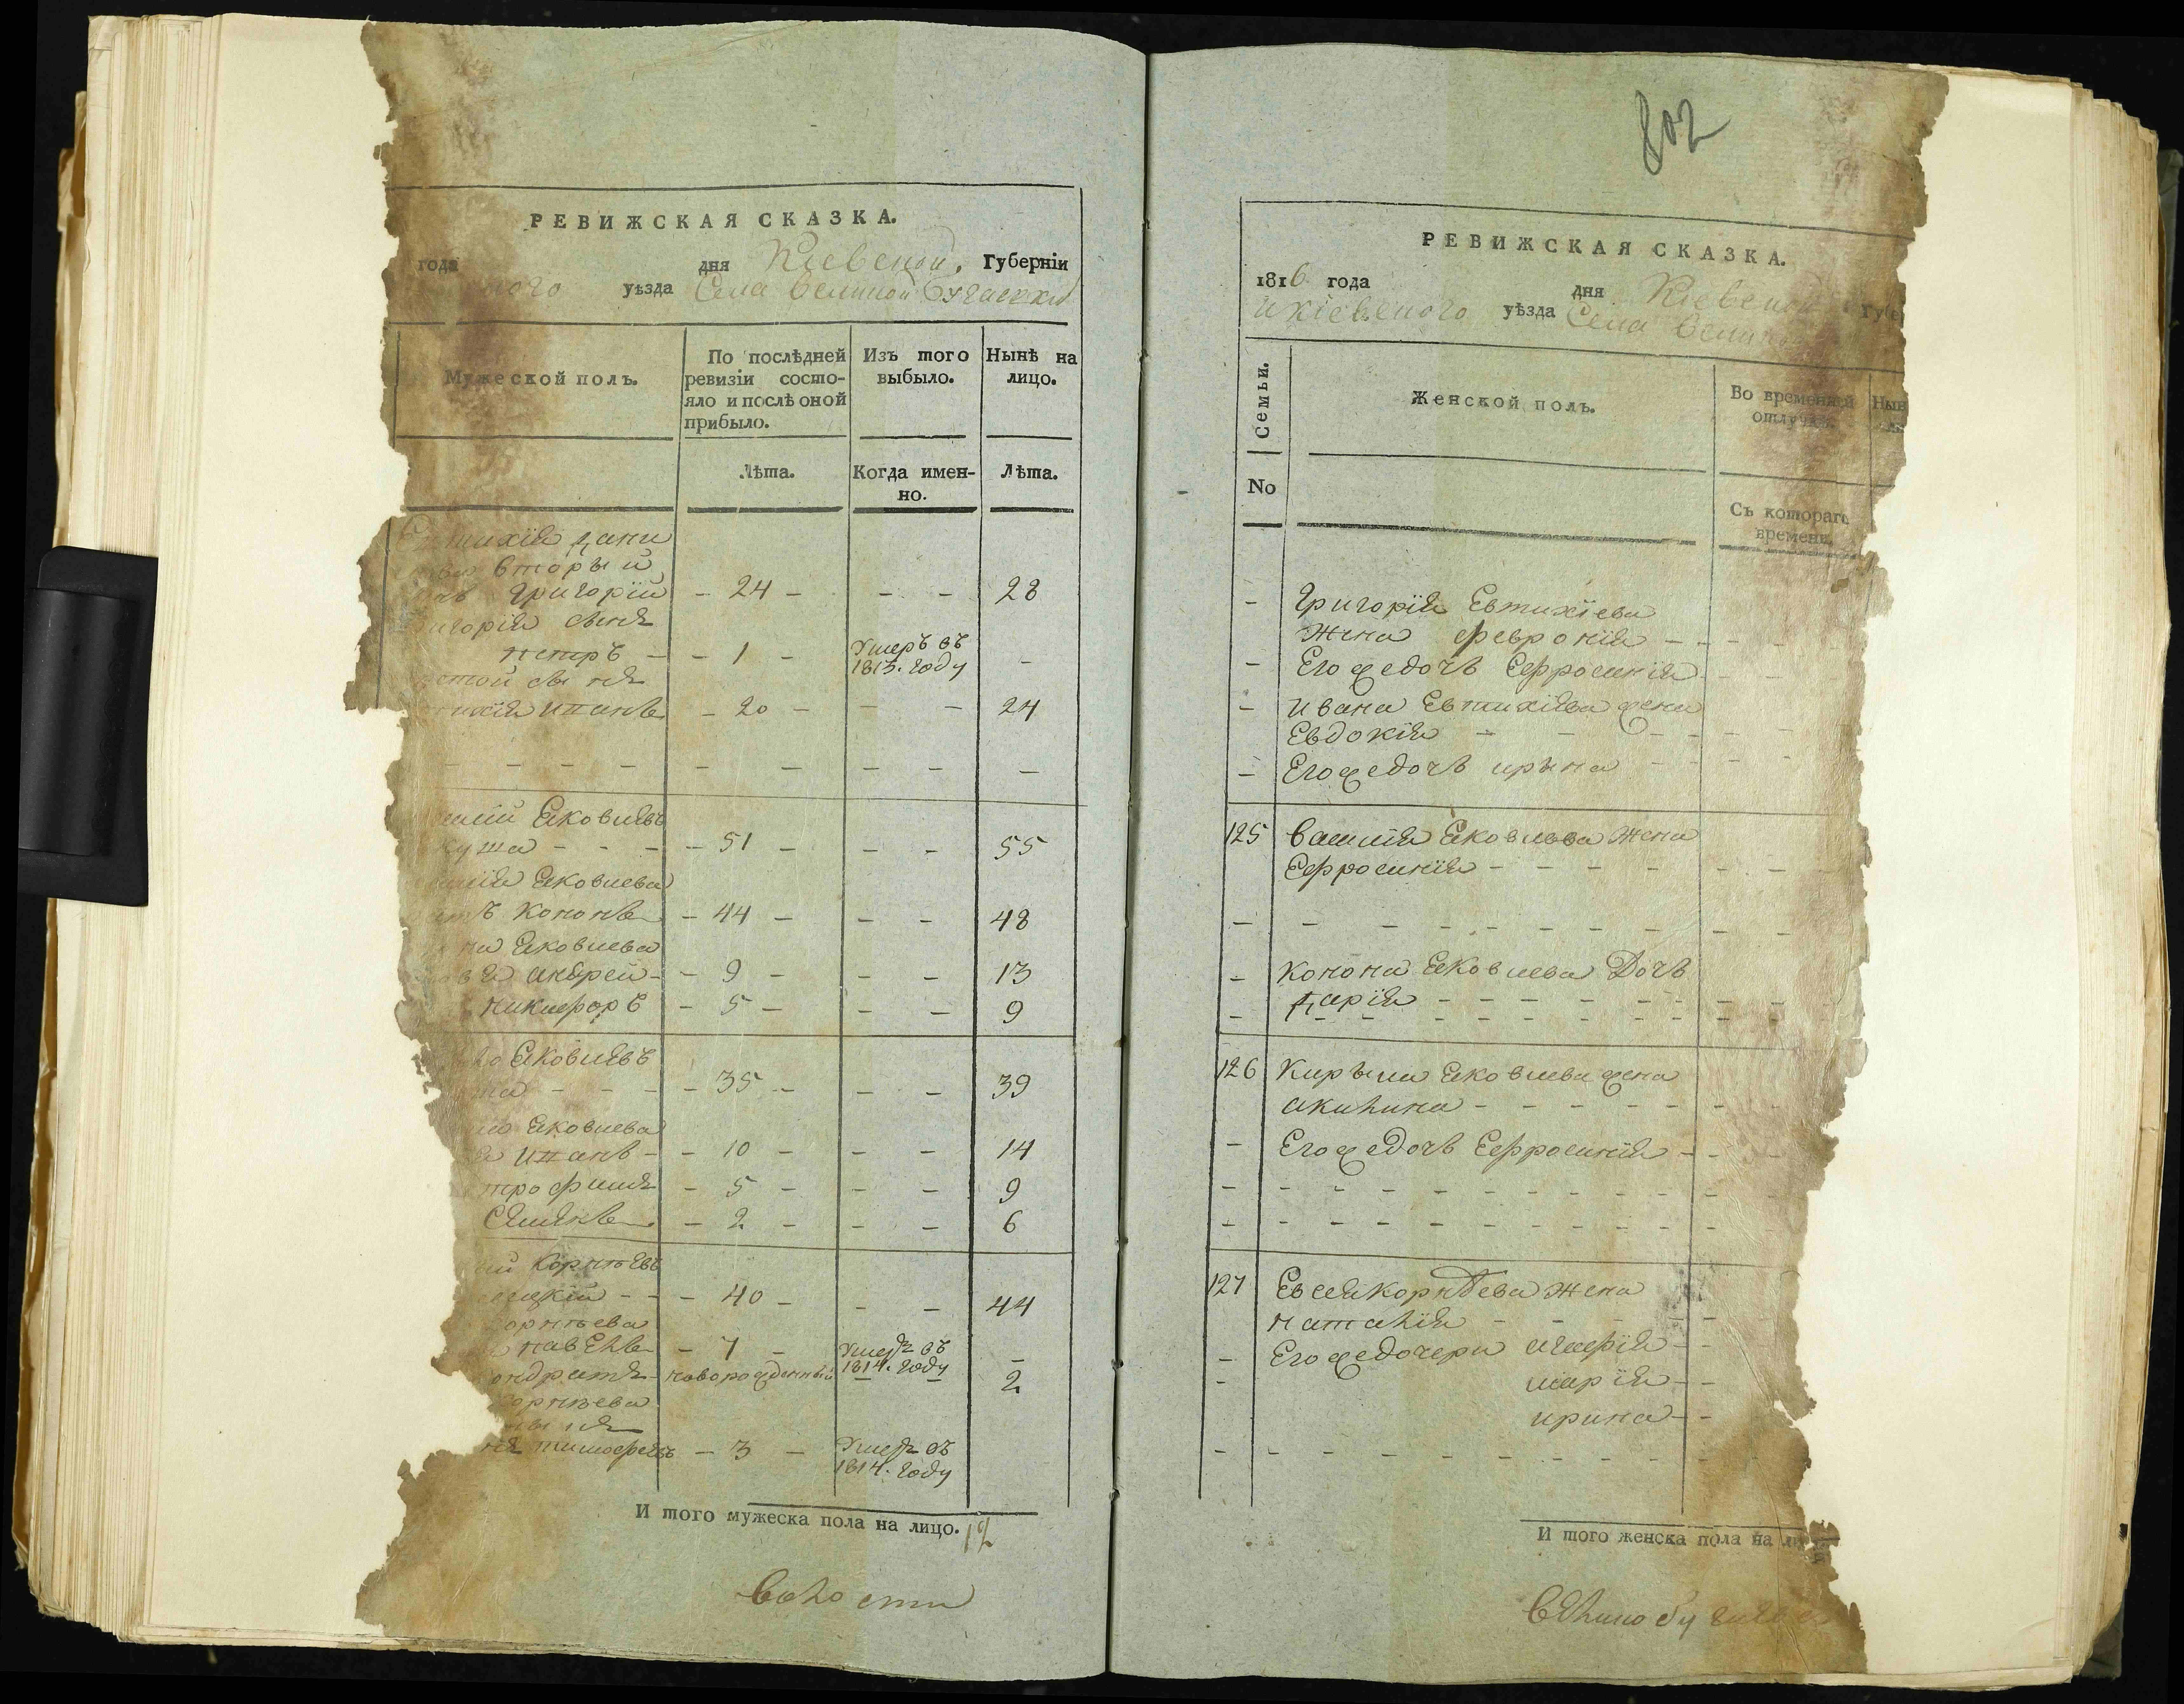 РЕВИЖСКАЯ СКАЗКА.
года дня Киевской, Губерніи
ного уѣзда Села Великой Бугаевки
Мужеской полъ.
По послѣдней ревизіи состо-
яло и послѣ оной
прибыло.
Изъ того
выбыло.
Нынѣ на
лицо.
Лѣта.
Когда имен-
но.
Лѣта.
Евтихія Дани
вторый
Григорій - 24 - - - 28
игорія сынъ
петръ - - 1 - Умеръ въ 1813. году -
той сынъ
ихія иванъ - 20 - - - 24
- - - - - - - - -
силій Яковлевъ
- - - - 51 - - - 55
илія Яковлева
атъ кононъ - 44 - - - 48
на Яковлева
андрей - - 9 - - - 13
никифоръ - 5 - - - 9
ло Яковлевъ
- - - - 35 - - - 39
ло Яковлева
иванъ - - 10 - - - 14
трофимъ - 5 - - - 9
Семенъ - 2 - - - 6
ей Корнѣевъ
- - - 40 - - - 44
орнѣева
павелъ - 7 - Умеръ въ 1814. году -
ондратъ - новорожденный - - 2
орнѣева
тимофей - 3 - Умеръ въ
1814. году
И того мужеска пола на лицо. 12
волости
802
РЕВИЖСКАЯ СКАЗКА.
1816 года дня Киевской Губе
и Кіевского уѣзда Села Велико
Семьи.
No
Женской полъ.
Во временной
отлучкѣ.
Нын
Съ котораго
времени.
- Григорія Евтихіева
жена февронія - -
- Его же дочь Ефросинія - - -
- Ивана Евтихіева жена
Евдокія - - - - - -
- Его же дочь ирина - - - -
125 Василія Яковлева жена
Ефросинія - - - - - - -
- - - - - - - - - - - -
- Конона Яковлева Дочь
дарія - - - - - - -
- - - - - - - - - - -
126 Кирыла Яковлева жена
акилина - - - - - - -
- Его же дочь Ефросинія - - -
- - - - - - - - - - - -
- - - - - - - - - - -
127 Евсея корнѣева жена
наталія - - - - -
- Его же дочери агафія - -
- марія - -
ирина - -
- - - - - - - - - -
И того женска пола на ли